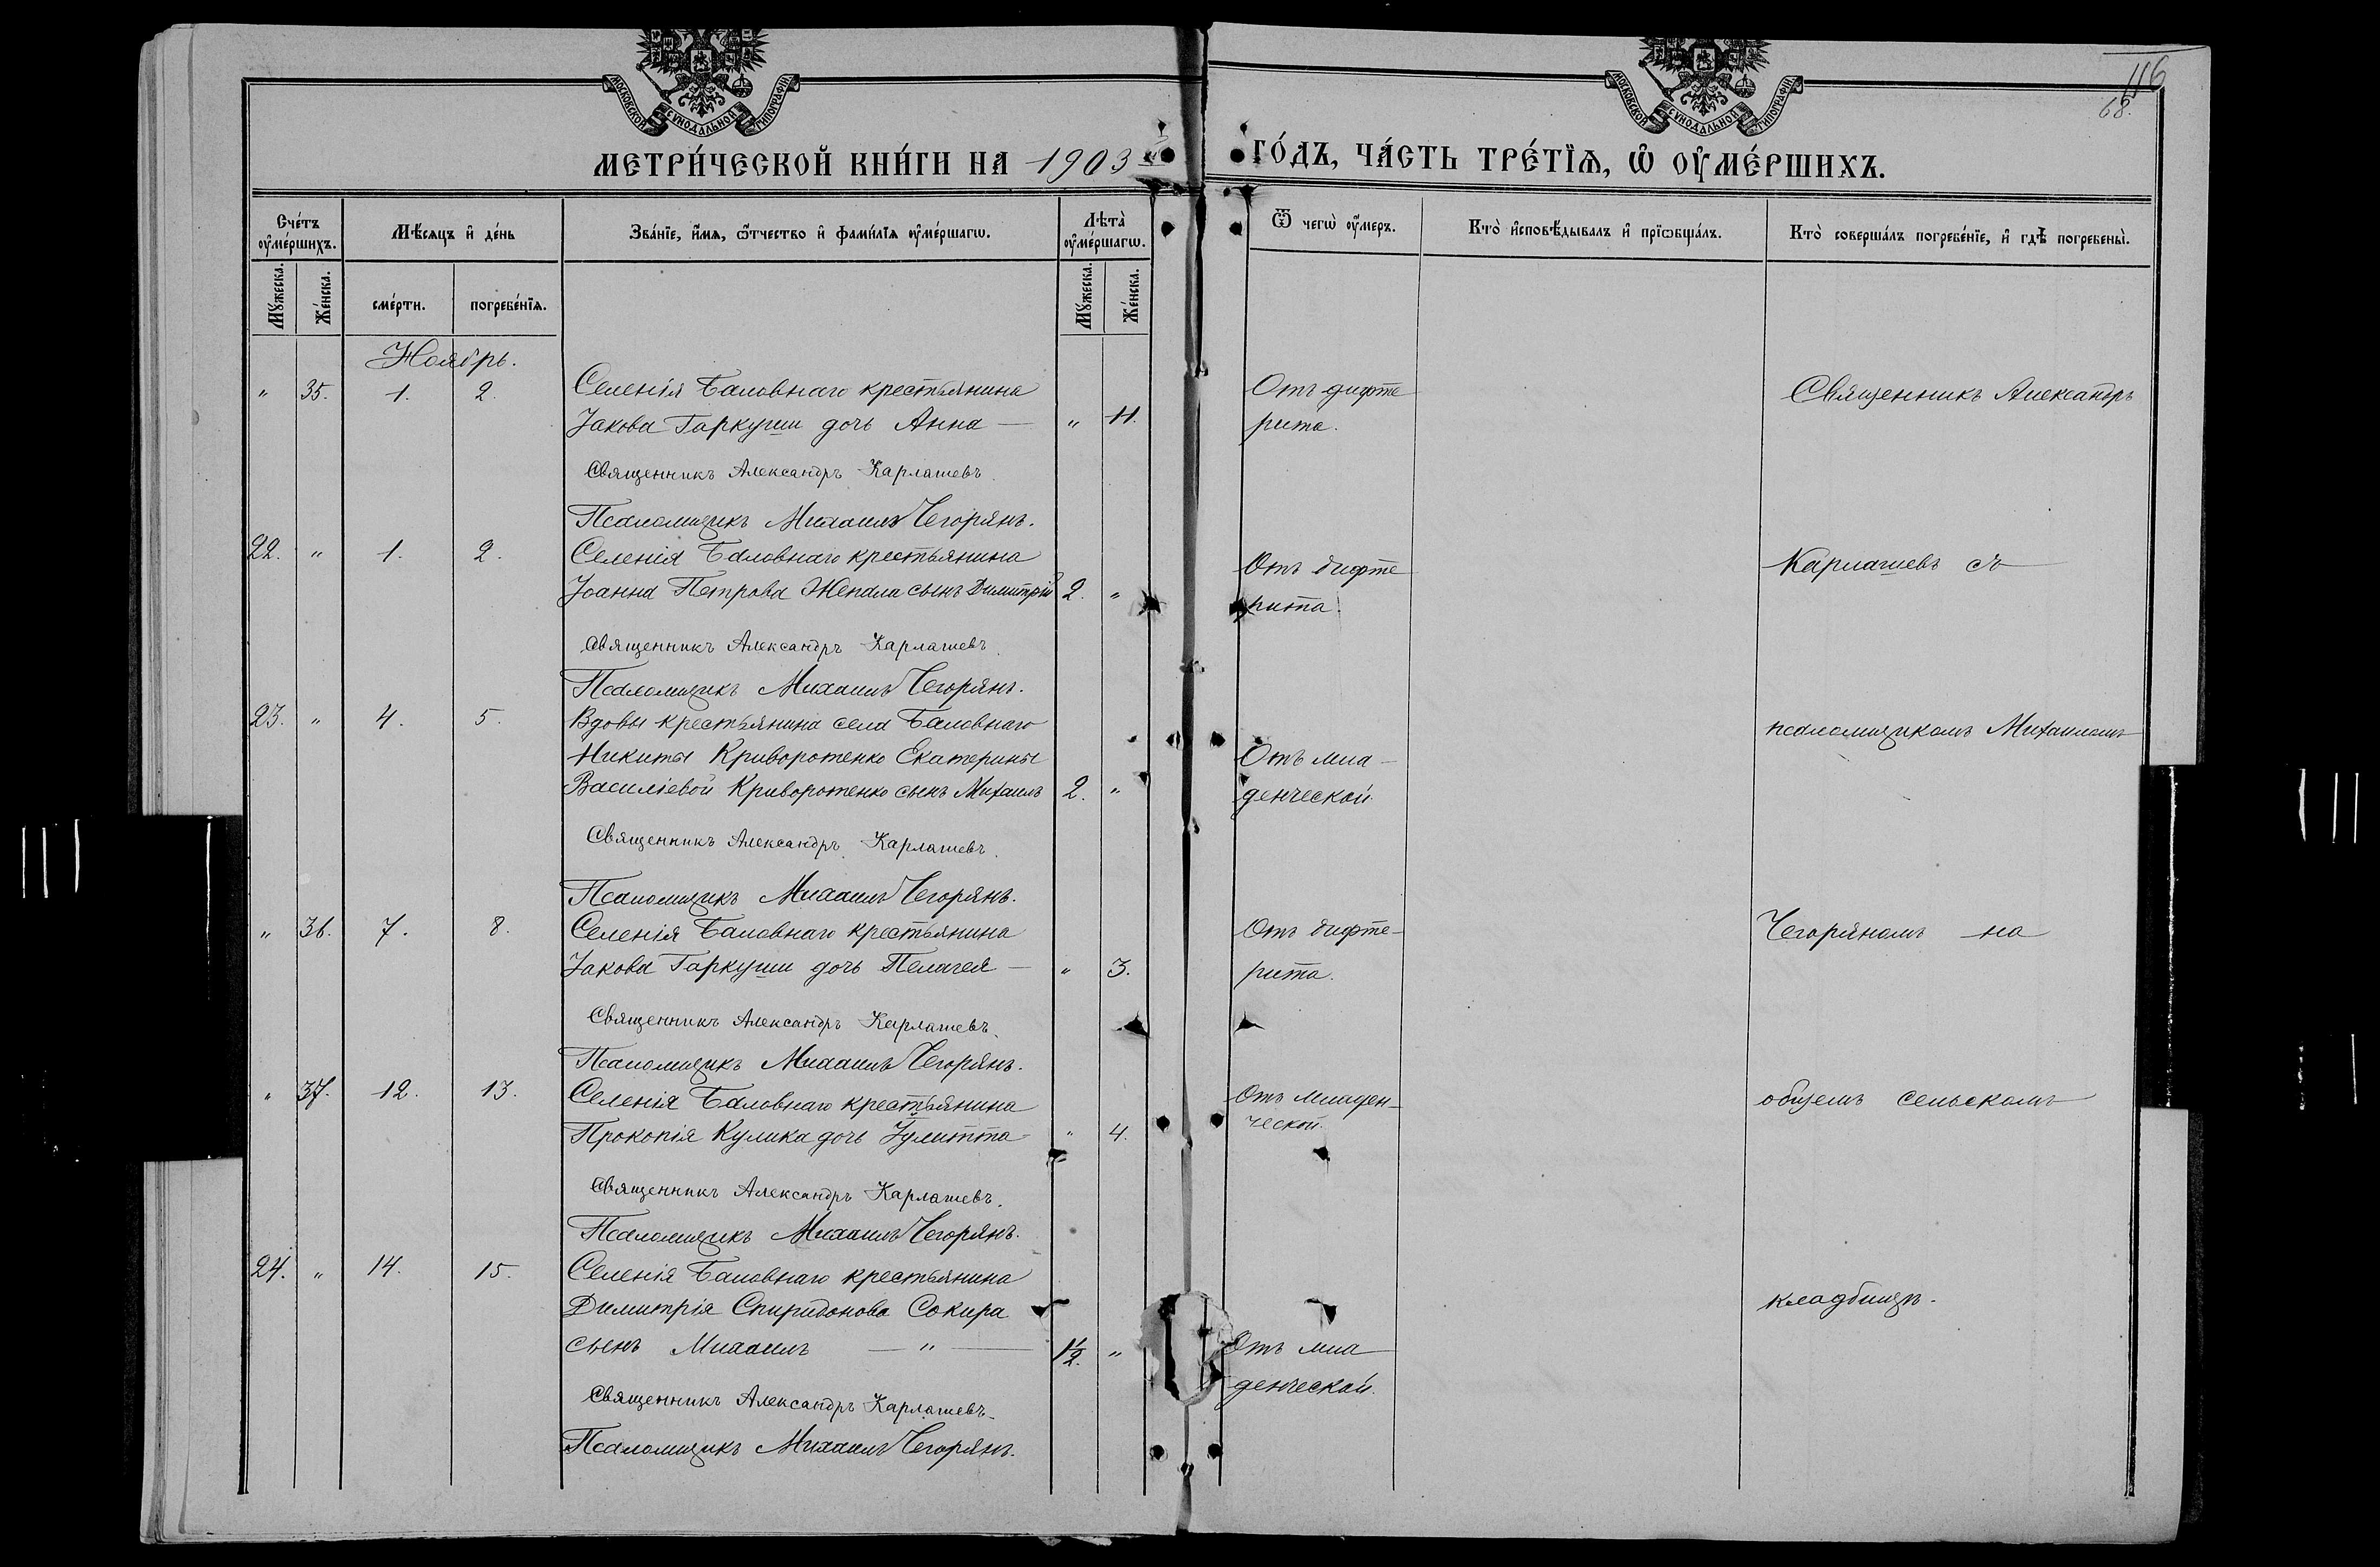 МОСКОВСКОЙ СѴНОДАЛЬНОЙ ТИПОГРАФІИ
МОСКОВСКОЙ СѴНОДАЛЬНОЙ ТИПОГРАФІИ
116
68.
МЕТРИ́ЧЕСКОЙ КНИ́ГИ НА 1903
ГО́ДЪ, ЧА́СТЬ ТРЕ́ТЇѦ, Ѡ҆ ОУ҆МЕ́РШИХЪ.
Сче́тъ оу҆ме́ршихъ.
Мѣ́сяцъ и҆ де́нь
Зва́нїе, и҆́мѧ, ѻ҆́тчество и҆ фами́лїѧ оу҆ме́ршагѡ.
Лѣта̀ оу҆ме́ршагѡ.
Ѿ чегѡ̀ оу҆́меръ.
Кто̀ и҆сповѣ́дывалъ и҆ прїѡбща́лъ.
Кто̀ соверша́лъ погребе́нїе, и҆ гдѣ̀ погребены̀.
Мꙋ́жеска.
Же́нска.
сме́рти.
погребе́нїѧ.
Мꙋ́жеска.
Же́нска.
Ноябрь.
" 35. 1. 2. Селенія Баловнаго крестьянина
Іакова Гаркуши дочь Анна — " 11.
Отъ дифте
рита.
Священникъ Александръ
Священникъ Александръ Карлашевъ.
Псаломщикъ Михаилъ Чегорянъ.
22. " 1. 2. Селенія Баловнаго крестьянина
Іоанна Петрова Жепала сынъ Димитрій 2. "
Отъ дифте
рита.
Карлашевъ съ
Священникъ Александръ Карлашевъ.
Псаломщикъ Михаилъ Чегорянъ.
23. " 4. 5. Вдовы крестьянина села Баловнаго
Никиты Криворотенко Екатерины
Василіевой Криворотенко сынъ Михаилъ 2. "
Отъ мла-
денческой.
псаломщикомъ Михаиломъ
Священникъ Александръ Карлашевъ.
Псаломщикъ Михаилъ Чегорянъ.
" 36. 7. 8. Селенія Баловнаго крестьянина
Іакова Гаркуши дочь Пелагея — " 3.
Отъ дифте-
рита.
Чегоряномъ на
Священникъ Александръ Карлашевъ.
Псаломщикъ Михаилъ Чегорянъ.
" 37. 12. 13. Селенія Баловнаго крестьянина
Прокопія Кулика дочь Іулитта " 4.
Отъ младен-
ческой.
общемъ сельскомъ
Священникъ Александръ Карлашевъ.
Псаломщикъ Михаилъ Чегорянъ.
24. " 14. 15. Селенія Баловнаго крестьянина
Димитрія Спиридонова Сокира
сынъ Михаилъ — " — 1½. "
Отъ мла
денческой.
кладбищѣ.
Священникъ Александръ Карлашевъ.
Псаломщикъ Михаилъ Чегорянъ.